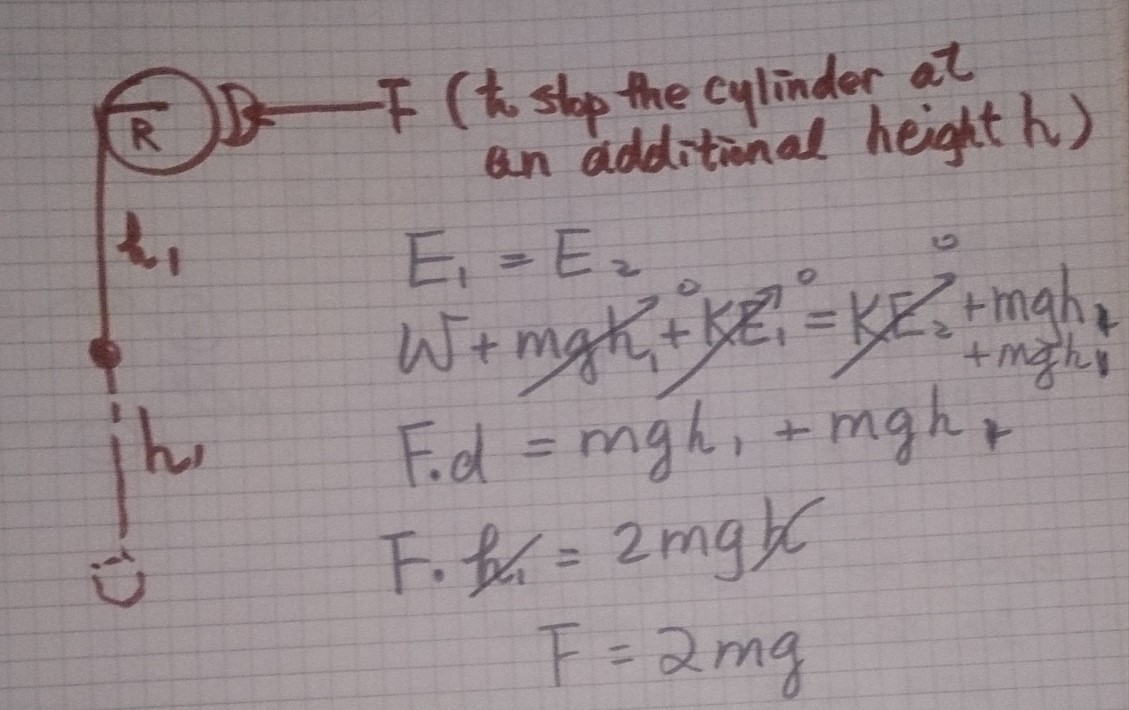 R
F (to stop the cylinder at
an additional height h)
h₁
E₁ = E₂
W + mgh₁ + KE₁ = KE₂ + mgh₁
0 0 0
+ mgh₁
F.d = mgh₁ + mgh₁
h₁
F. h₁ = 2mgh
F = 2mg